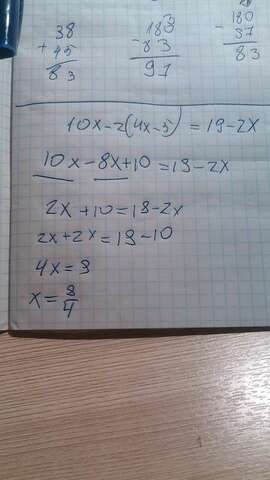 38
+ 45
83
180
- 83
97
- 180
97
83
10x-2(4x-5) = 19-2x
10x-8x+10=19-2x
2x+10=19-2x
2x+2x=19-10
4x=9
x=9/4